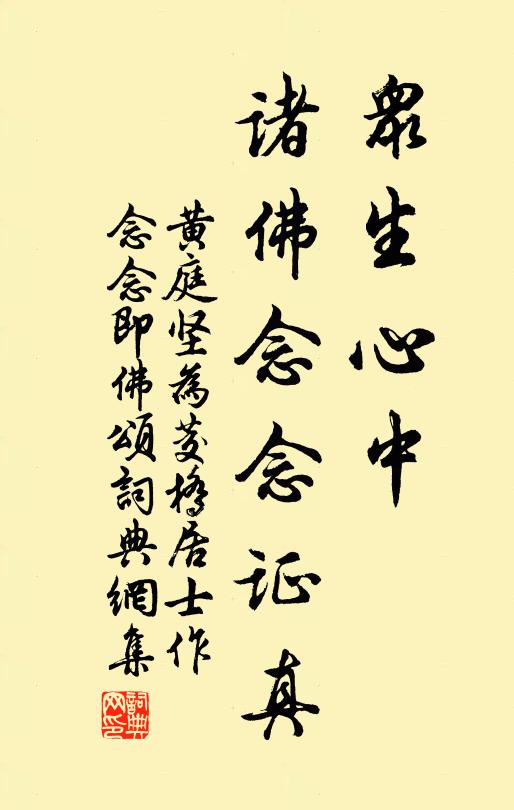 眾生心中
诸佛念念证真
黄庭坚為茭橋居士作
念念即佛頌詞典網集
詞典
网印